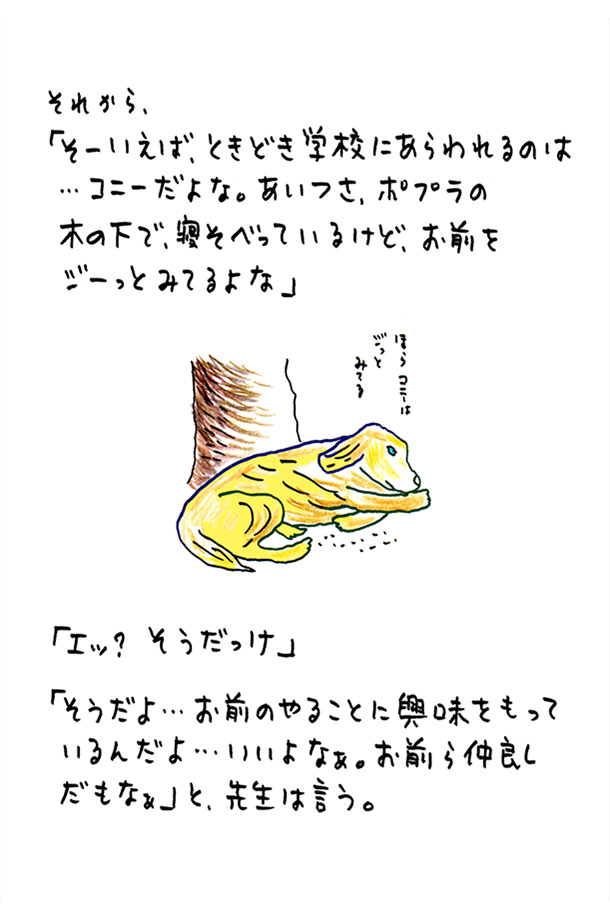 それから、
「そーいえば、ときどき学校にあらわれるのは
…コニーだよな。あいつさ、ポプラの
木の下で、寝そべっているけど、お前を
ジーっとみてるよな」
ほら コニーは
じっと
みてる
「エッ？ そうだっけ」
「そうだよ…お前のやることに興味をもって
いるんだよ…いいよなぁ。お前ら仲良し
だもなぁ」と、先生は言う。